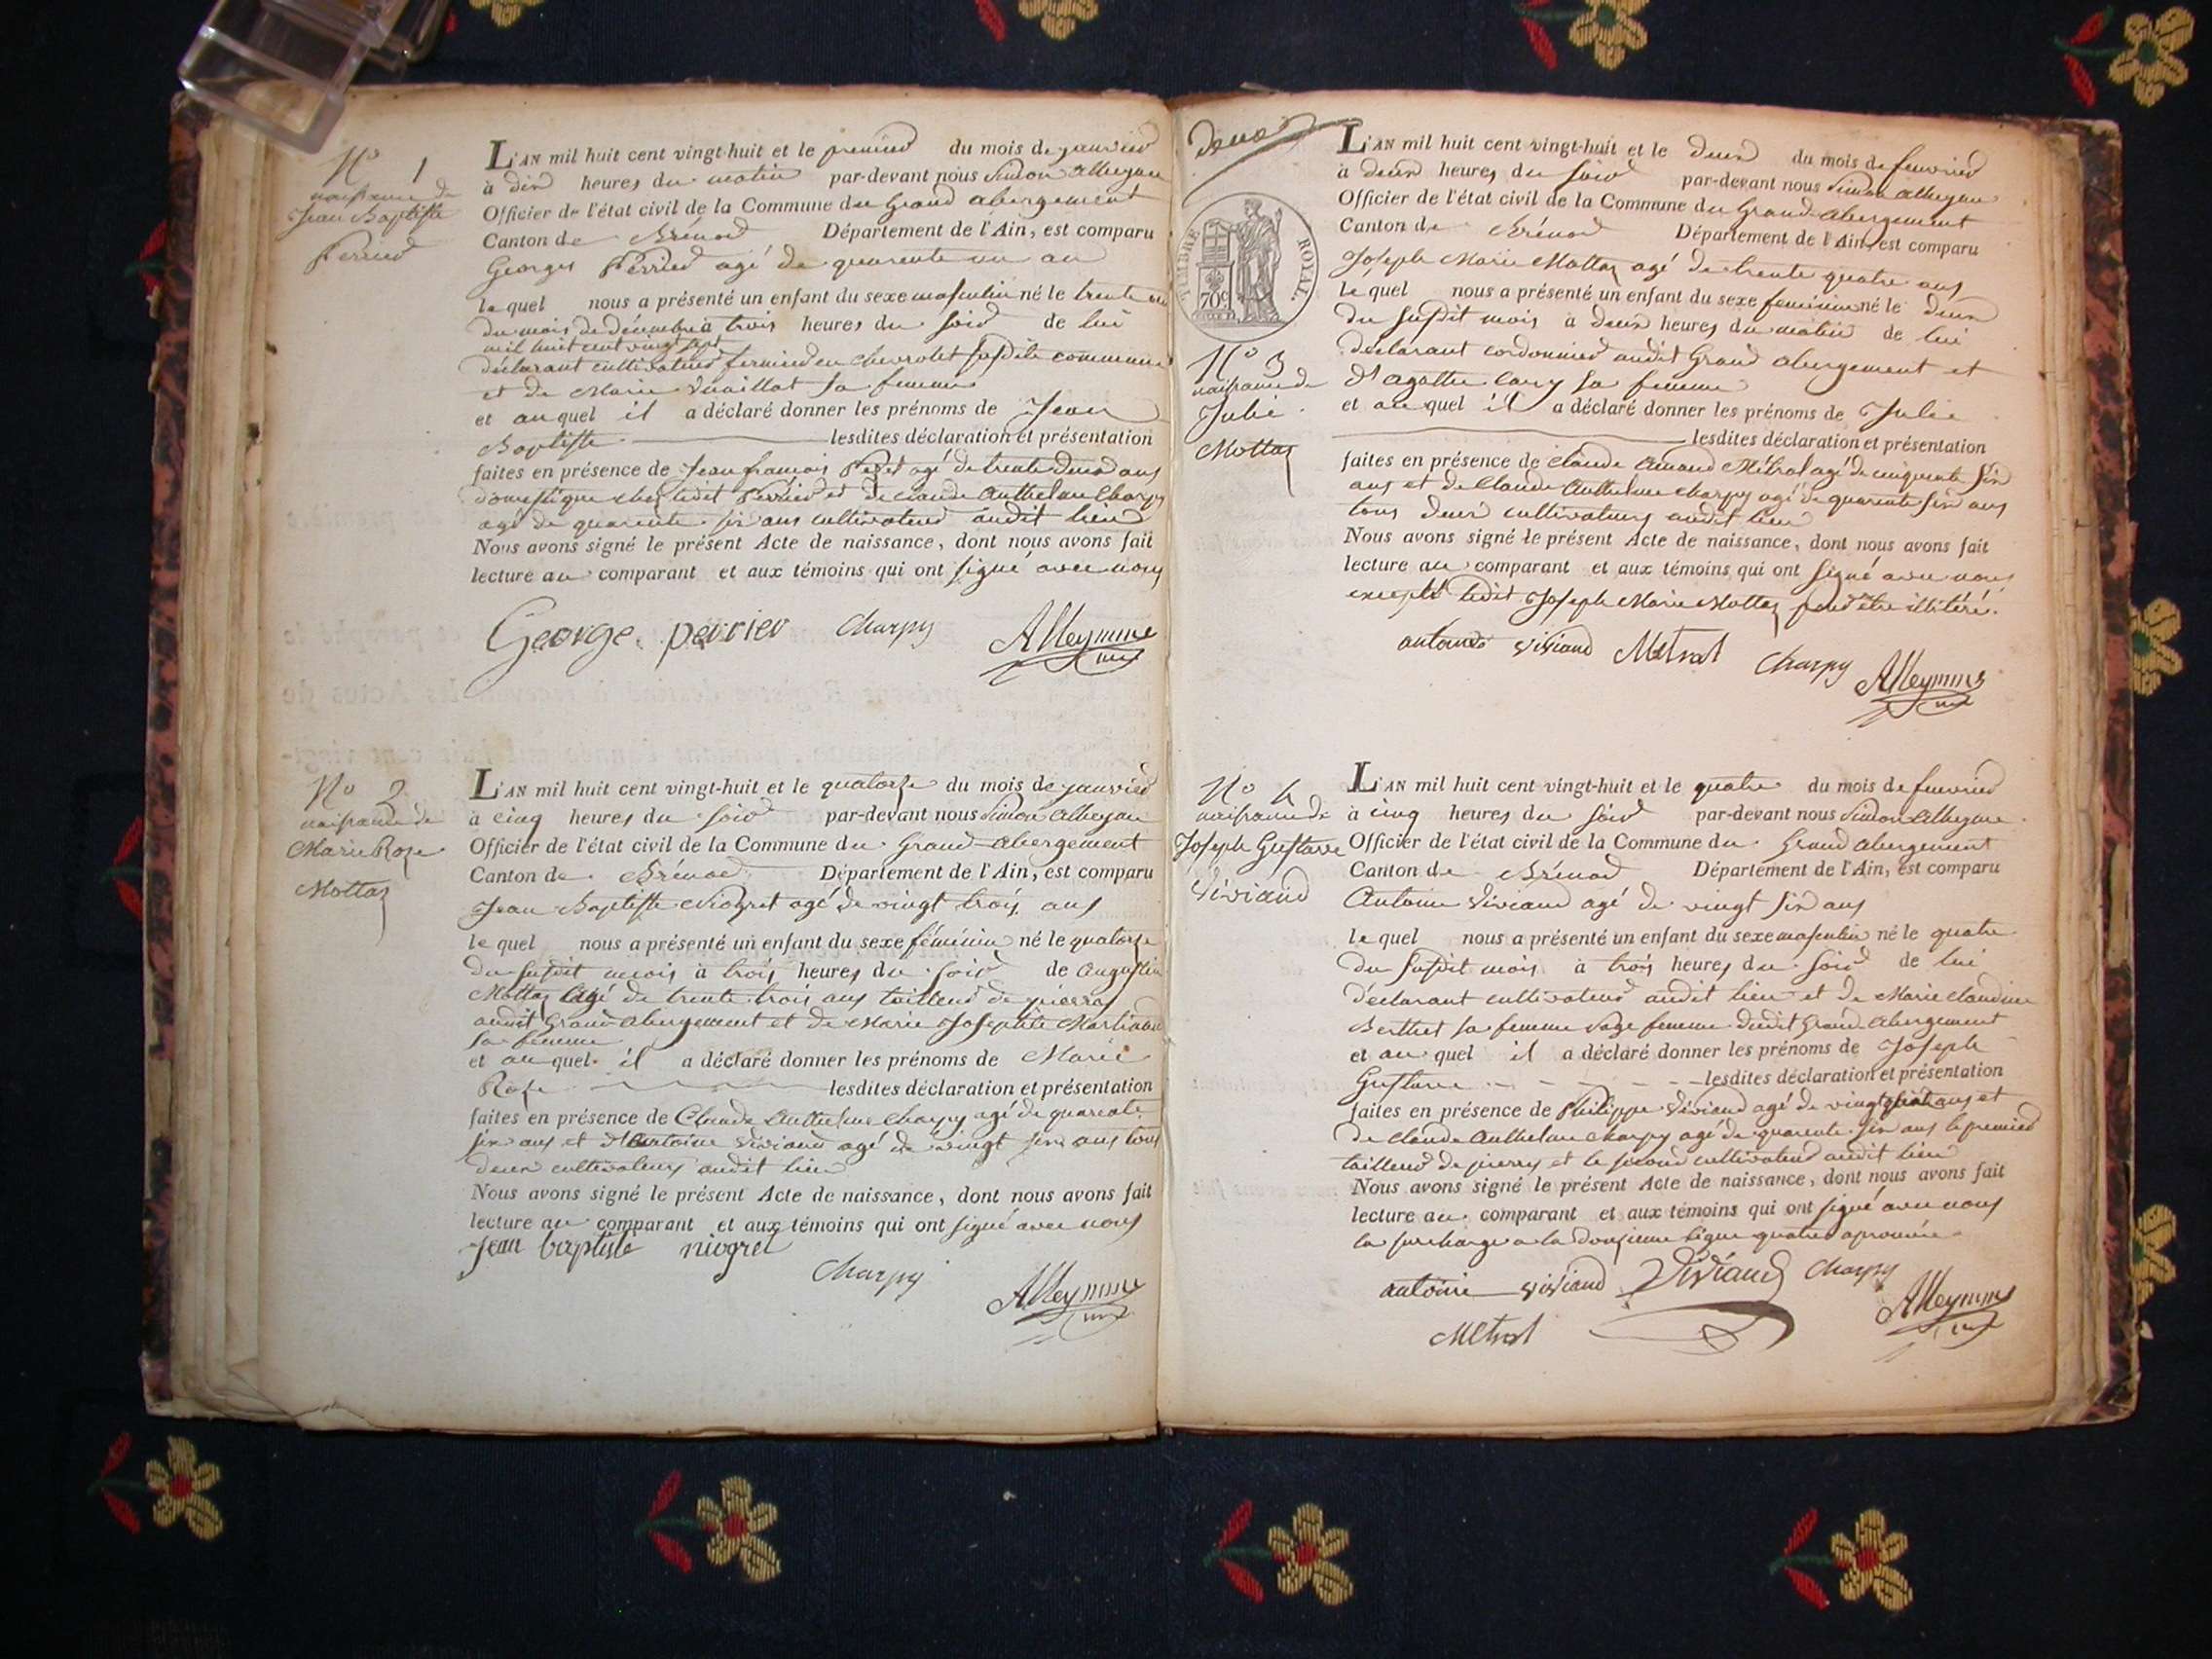 N° 1
naissance de
Jean Baptiste
Perrier
L'AN mil huit cent vingt-huit et le premier du mois de janvier
à dix heures du matin par-devant nous Simon Alleyme
Officier de l'état civil de la Commune du Grand abergement
Canton de Brénod Département de l'Ain, est comparu
Georges Perrier agé de quarente un an
lequel nous a présenté un enfant du sexe masculin né le trente un
du mois de décembre à trois heures du soir de lui
mil huit cent vingt sept
déclarant cultivateur fermier en chevrolet susdite commune
et de Marie Vuaillat sa femme
et auquel il a déclaré donner les prénoms de Jean
Baptiste lesdites déclaration et présentation
faites en présence de Jean françois agé de trente deux ans
domestique chez ledit Perrier et de Claude Anthelme Charpy
agé de quarente six ans cultivateur audit lieu
Nous avons signé le présent Acte de naissance, dont nous avons fait
lecture au comparant et aux témoins qui ont signé avec nous
George perrier Charpy Alleymme
N° 2
naissance de
Marie Rose
Mottaz
L'AN mil huit cent vingt-huit et le quatorze du mois de janvier
à cinq heures du soir par-devant nous Simon Alleyme
Officier de l'état civil de la Commune du Grand abergement
Canton de Brénod Département de l'Ain, est comparu
Jean Baptiste Niogret agé de vingt trois ans
lequel nous a présenté un enfant du sexe féminin né le quatorze
du susdit mois à trois heures du soir de Augustin
Mottaz agé de trente trois ans tailleur de pierres
audit Grand abergement et de Marie Josephte Martinand
sa femme
et auquel il a déclaré donner les prénoms de Marie
Rose lesdites déclaration et présentation
faites en présence de Claude Anthelme Charpy agé de quarente
six ans et d'Antoine Viviand agé de vingt six ans tous
deux cultivateurs audit lieu
Nous avons signé le présent Acte de naissance, dont nous avons fait
lecture au comparant et aux témoins qui ont signé avec nous
jean baptiste niogret
Charpy Alleymme
deux
TIMBRE ROYAL
70c
N° 3
naissance de
Julie
Mottaz
L'AN mil huit cent vingt-huit et le deux du mois de fevrier
à deux heures du soir par-devant nous Simon Alleyme
Officier de l'état civil de la Commune du Grand abergement
Canton de Brénod Département de l'Ain, est comparu
Joseph Marie Mottaz agé de trente quatre ans
lequel nous a présenté un enfant du sexe feminin né le deux
du susdit mois à deux heures du matin de lui
déclarant cordonnier audit Grand abergement et
d'agathe Cary sa femme
et auquel il a déclaré donner les prénoms de Julie
lesdites déclaration et présentation
faites en présence de Claude Amand Métral agé de cinquente six
ans et de Claude Anthelme Charpy agé de quarente six ans
tous deux cultivateurs audit lieu
Nous avons signé le présent Acte de naissance, dont nous avons fait
lecture au comparant et aux témoins qui ont signé avec nous
excepté ledit Joseph Marie Mottaz pour être illitéré.
antoine viviand Metral Charpy Alleymme
N° 4
naissance de
Joseph Gustave
Viviand
L'AN mil huit cent vingt-huit et le quatre du mois de fevrier
à cinq heures du soir par-devant nous Simon Alleyme
Officier de l'état civil de la Commune du Grand abergement
Canton de Brénod Département de l'Ain, est comparu
Antoine Viviand agé de vingt six ans
lequel nous a présenté un enfant du sexe masculin né le quatre
du susdit mois à trois heures du soir de lui
déclarant cultivateur audit lieu et de Marie Claudine
Berthet sa femme sage femme dudit Grand abergement
et auquel il a déclaré donner les prénoms de Joseph
Gustave lesdites déclaration et présentation
faites en présence de Philippe Viviand agé de vingt quatre ans et
de Claude Anthelme Charpy agé de quarente six ans le premier
tailleur de pierres et le second cultivateur audit lieu
Nous avons signé le présent Acte de naissance, dont nous avons fait
lecture au comparant et aux témoins qui ont signé avec nous
la surcharge a la douzieme ligne quatre aprouvée
antoine viviand Viviand Charpy
Metral Alleymme